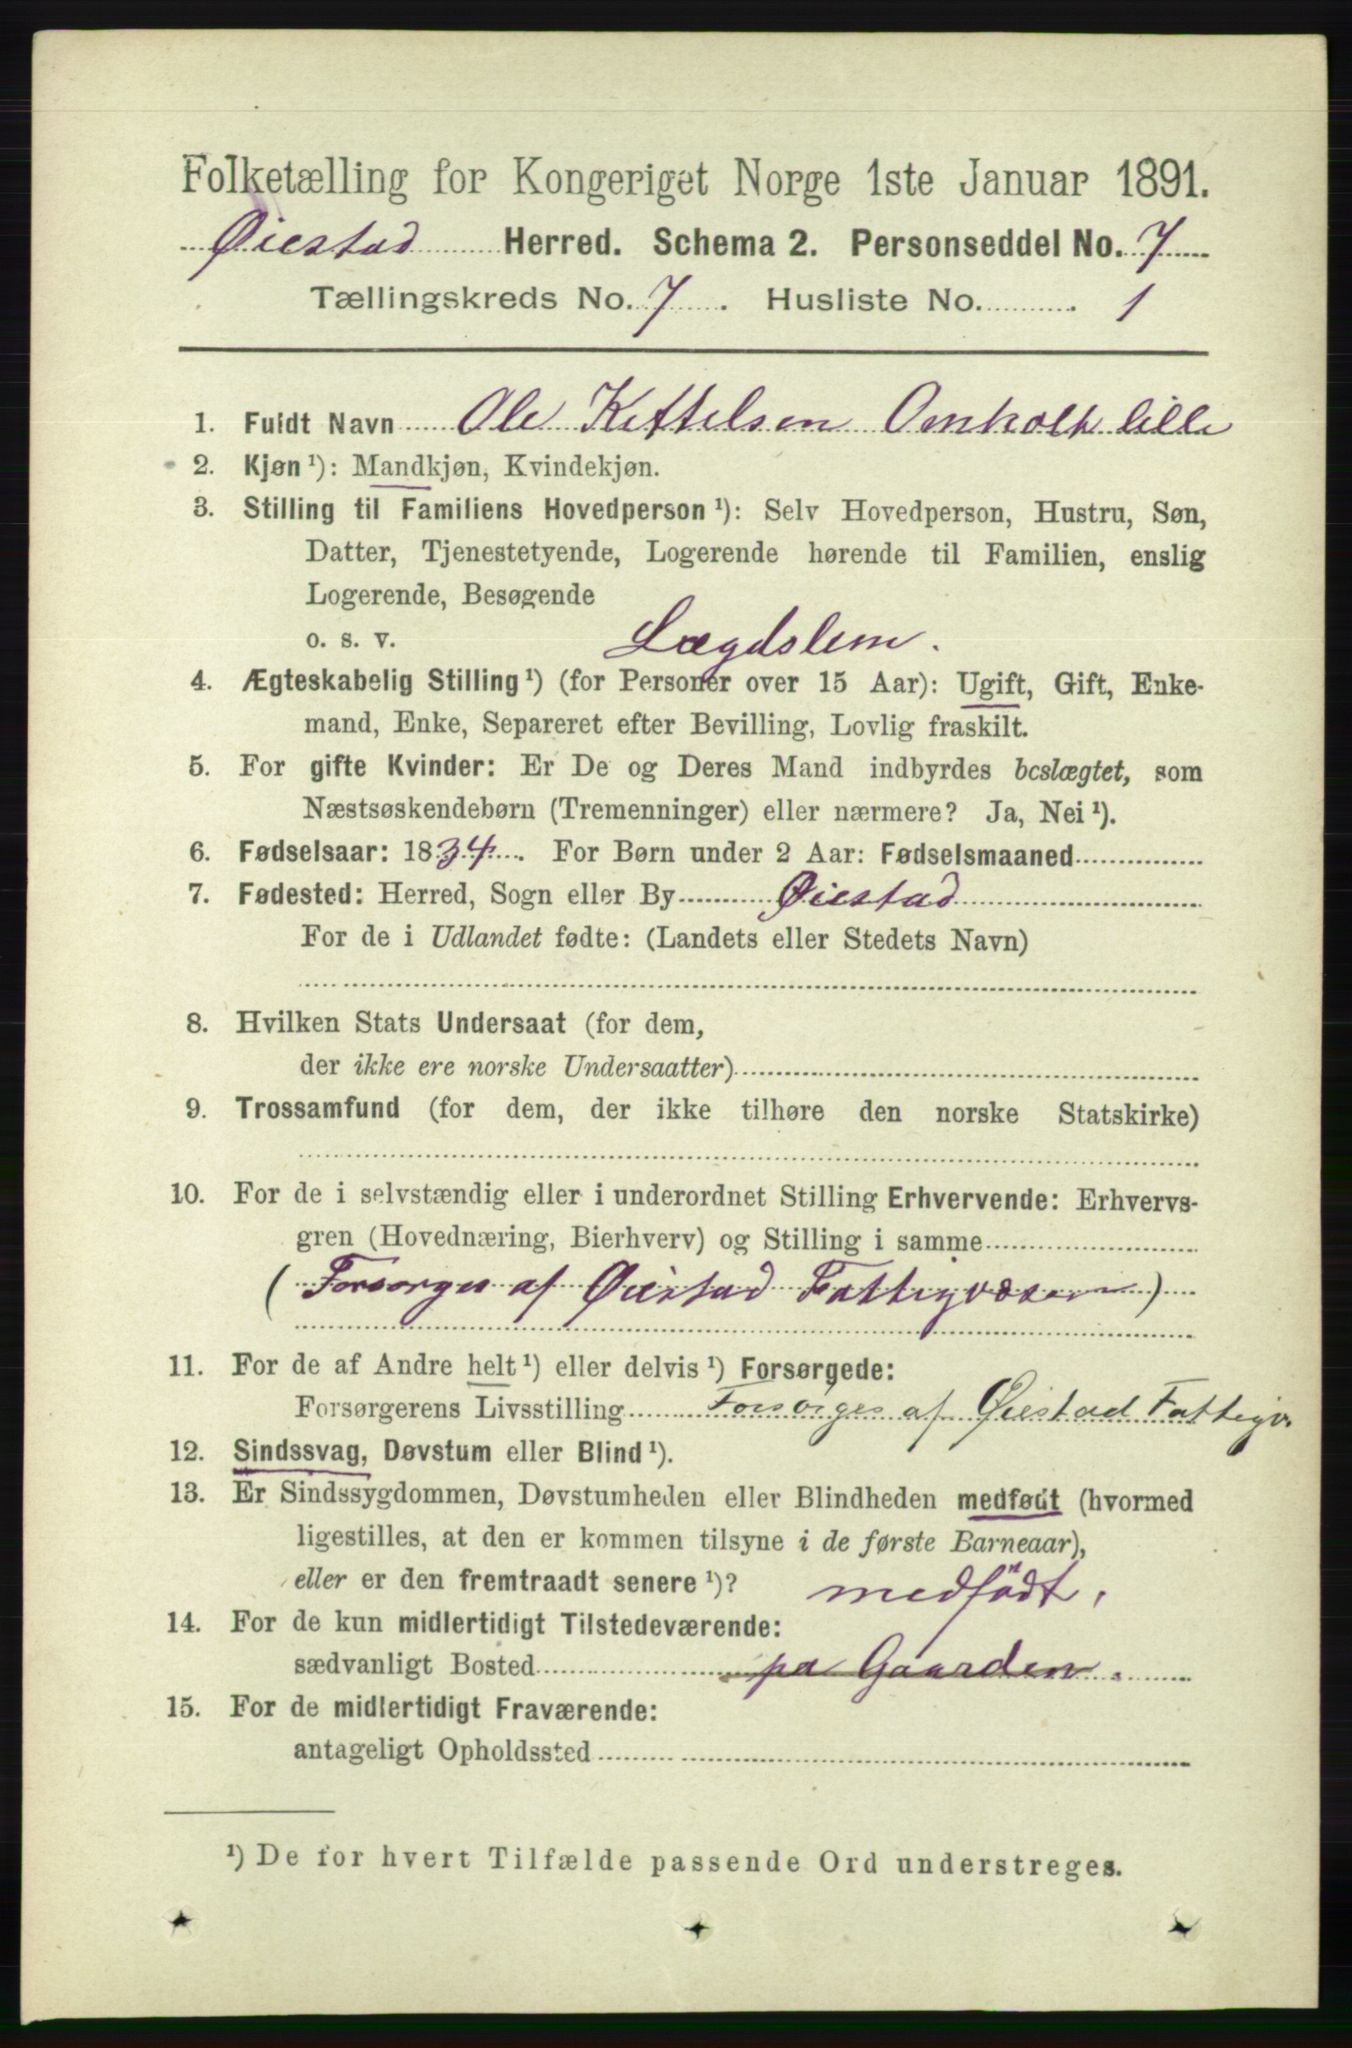 Folketælling for Kongeriget Norge 1ste Januar 1891.
Øiestad Herred. Schema 2. Personseddel No. 7
Tællingskreds No. 7. Husliste No. 1
1. Fuldt Navn Ole Kettelsen Omholt lille
2. Kjøn ¹): Mandkjøn, Kvindekjøn.
3. Stilling til Familiens Hovedperson ¹): Selv Hovedperson, Hustru, Søn,
Datter, Tjenestetyende, Logerende hørende til Familien, enslig
Logerende, Besøgende
o. s. v. Lægdslem.
4. Ægteskabelig Stilling ¹) (for Personer over 15 Aar): Ugift, Gift, Enke-
mand, Enke, Separeret efter Bevilling, Lovlig fraskilt.
5. For gifte Kvinder: Er De og Deres Mand indbyrdes beslægtet, som
Næstsøskendebørn (Tremenninger) eller nærmere? Ja, Nei ¹).
6. Fødselsaar: 1834. For Børn under 2 Aar: Fødselsmaaned
7. Fødested: Herred, Sogn eller By Øiestad
For de i Udlandet fødte: (Landets eller Stedets Navn)
8. Hvilken Stats Undersaat (for dem,
der ikke ere norske Undersaatter)
9. Trossamfund (for dem, der ikke tilhøre den norske Statskirke)
10. For de i selvstændig eller i underordnet Stilling Erhvervende: Erhvervs-
gren (Hovednæring, Bierhverv) og Stilling i samme
(Forsorges af Øiestad Fattigvæsen)
11. For de af Andre helt ¹) eller delvis ¹) Forsørgede:
Forsørgerens Livsstilling Forsørges af Øiestad Fattigv.
12. Sindssvag, Døvstum eller Blind ¹).
13. Er Sindssygdommen, Døvstumheden eller Blindheden medfødt (hvormed
ligestilles, at den er kommen tilsyne i de første Barneaar),
eller er den fremtraadt senere ¹)? medfödt.
14. For de kun midlertidigt Tilstedeværende:
sædvanligt Bosted pa Gaarden.
15. For de midlertidigt Fraværende:
antageligt Opholdssted
¹) De for hvert Tilfælde passende Ord understreges.